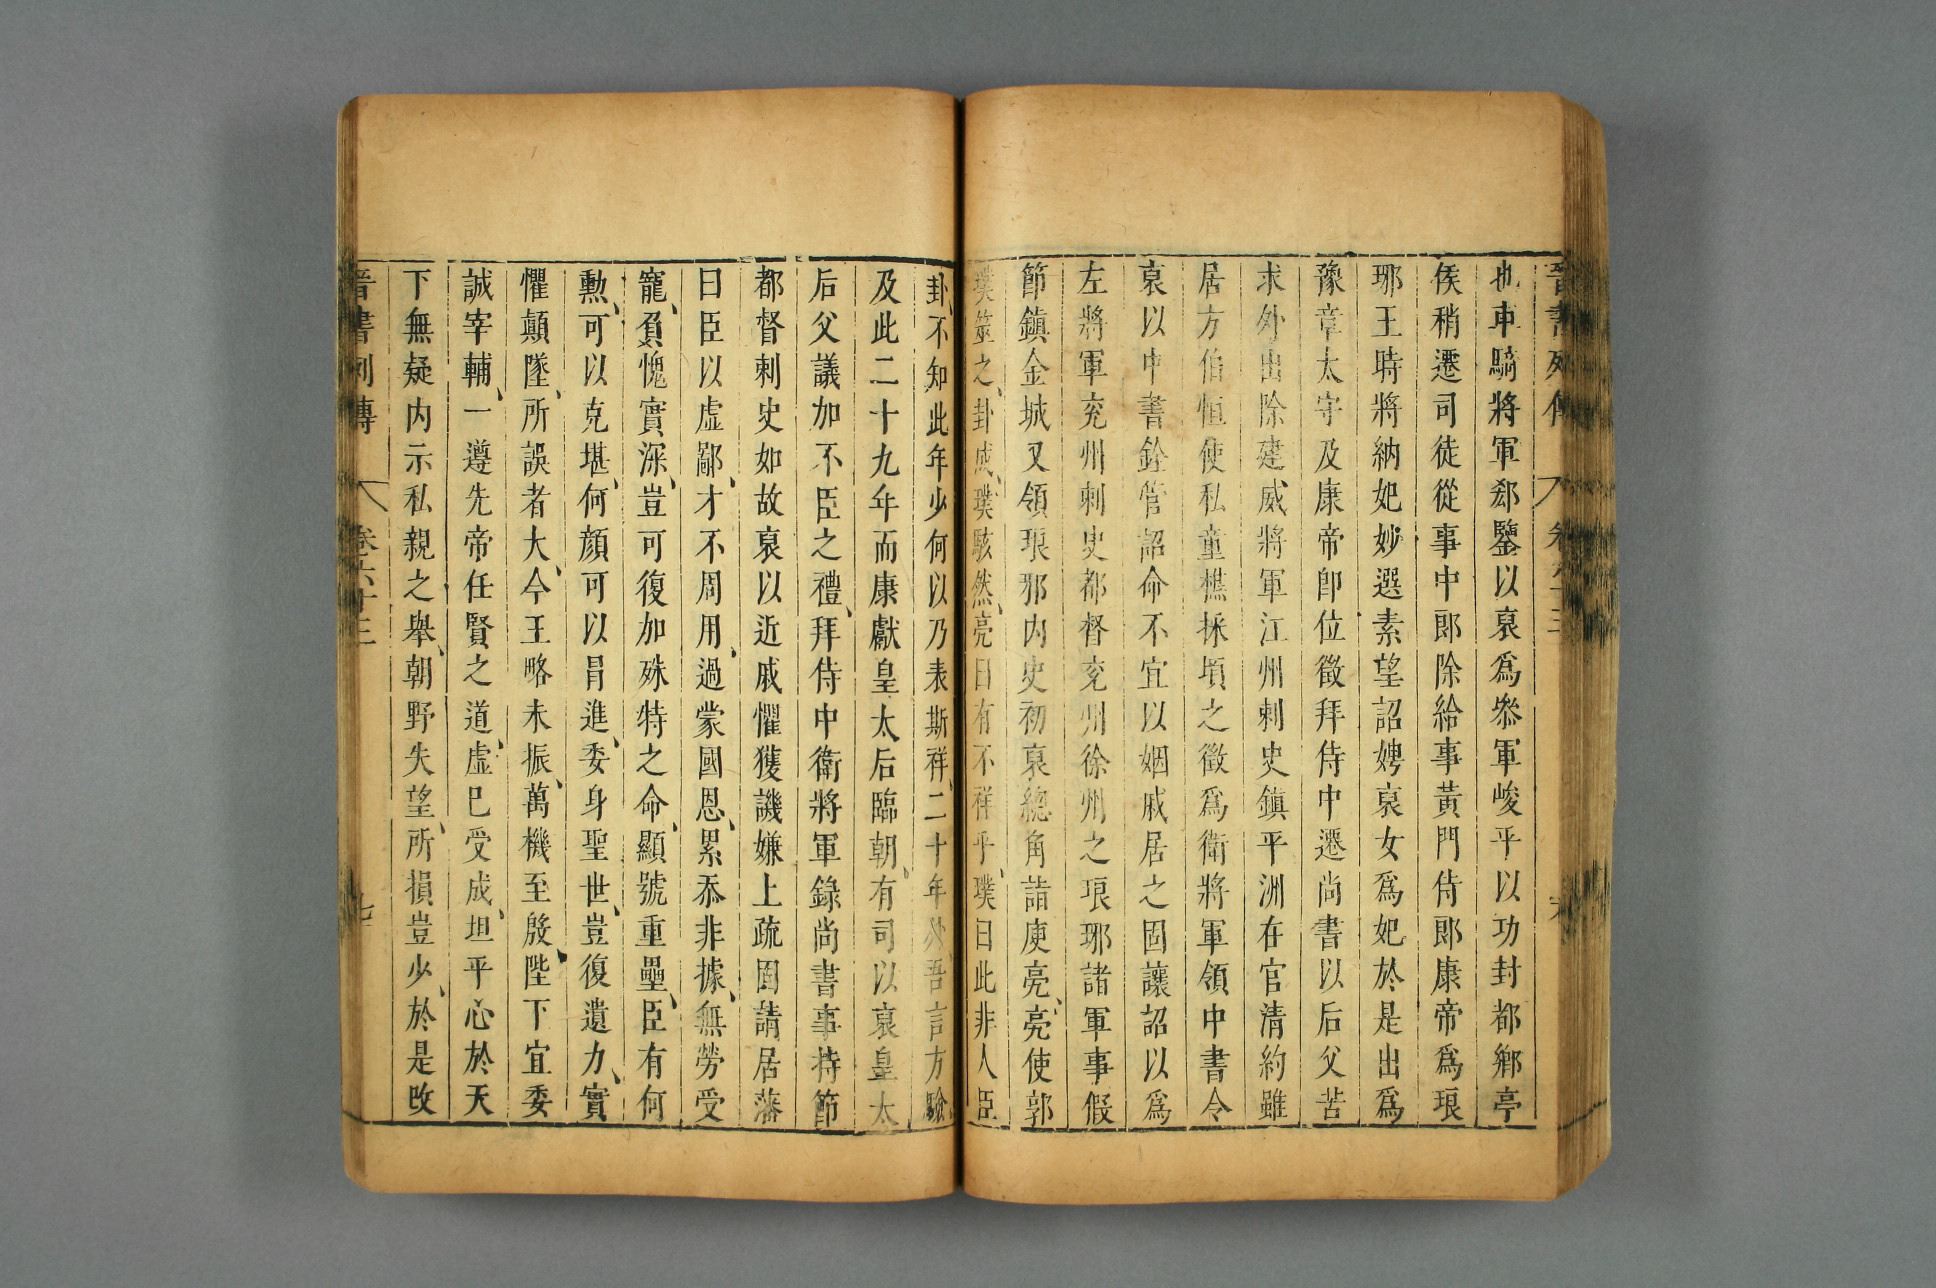 晉書列傳 卷六十三 六
也車騎將軍郄鑒以裒爲參軍峻平以功封都鄉亭
侯稍遷司徒從事中郎除給事黃門侍郎康帝爲琅
琊王時將納妃妙選素望詔娉裒女爲妃於是出爲
豫章太守及康帝卽位徵拜侍中遷尚書以后父苦
求外出除建威將軍江州刺史鎮平洲在官清約雖
居方伯恒使私童樵採頃之徵爲衛將軍領中書令
裒以中書銓管詔命不宜以姻戚居之固讓詔以爲
左將軍兖州刺史都督兖州徐州之琅琊諸軍事假
節鎮金城又領琅邪内史初裒總角詣庾亮亮使郭
璞筮之卦成璞駭然亮曰有不祥乎璞曰此非人臣
卦不知此年少何以乃表斯祥二十年外吾言方驗
及此二十九年而康獻皇太后臨朝有司以裒皇太
后父議加不臣之禮拜侍中衛將軍錄尚書事持節
都督刺史如故裒以近戚懼獲譏嫌上疏固請居藩
曰臣以虛鄙才不周用過蒙國恩累忝非據無勞受
寵負愧實深豈可復加殊特之命顯號重疊臣有何
勲可以克堪何顔可以冒進委身聖世豈復遺力實
懼顛墜所誤者大今王略未振萬機至殷陛下宜委
誠宰輔一遵先帝任賢之道虛己受成坦平心於天
下無疑内示私親之舉朝野失望所損豈少於是改
晉書列傳 卷六十三 七